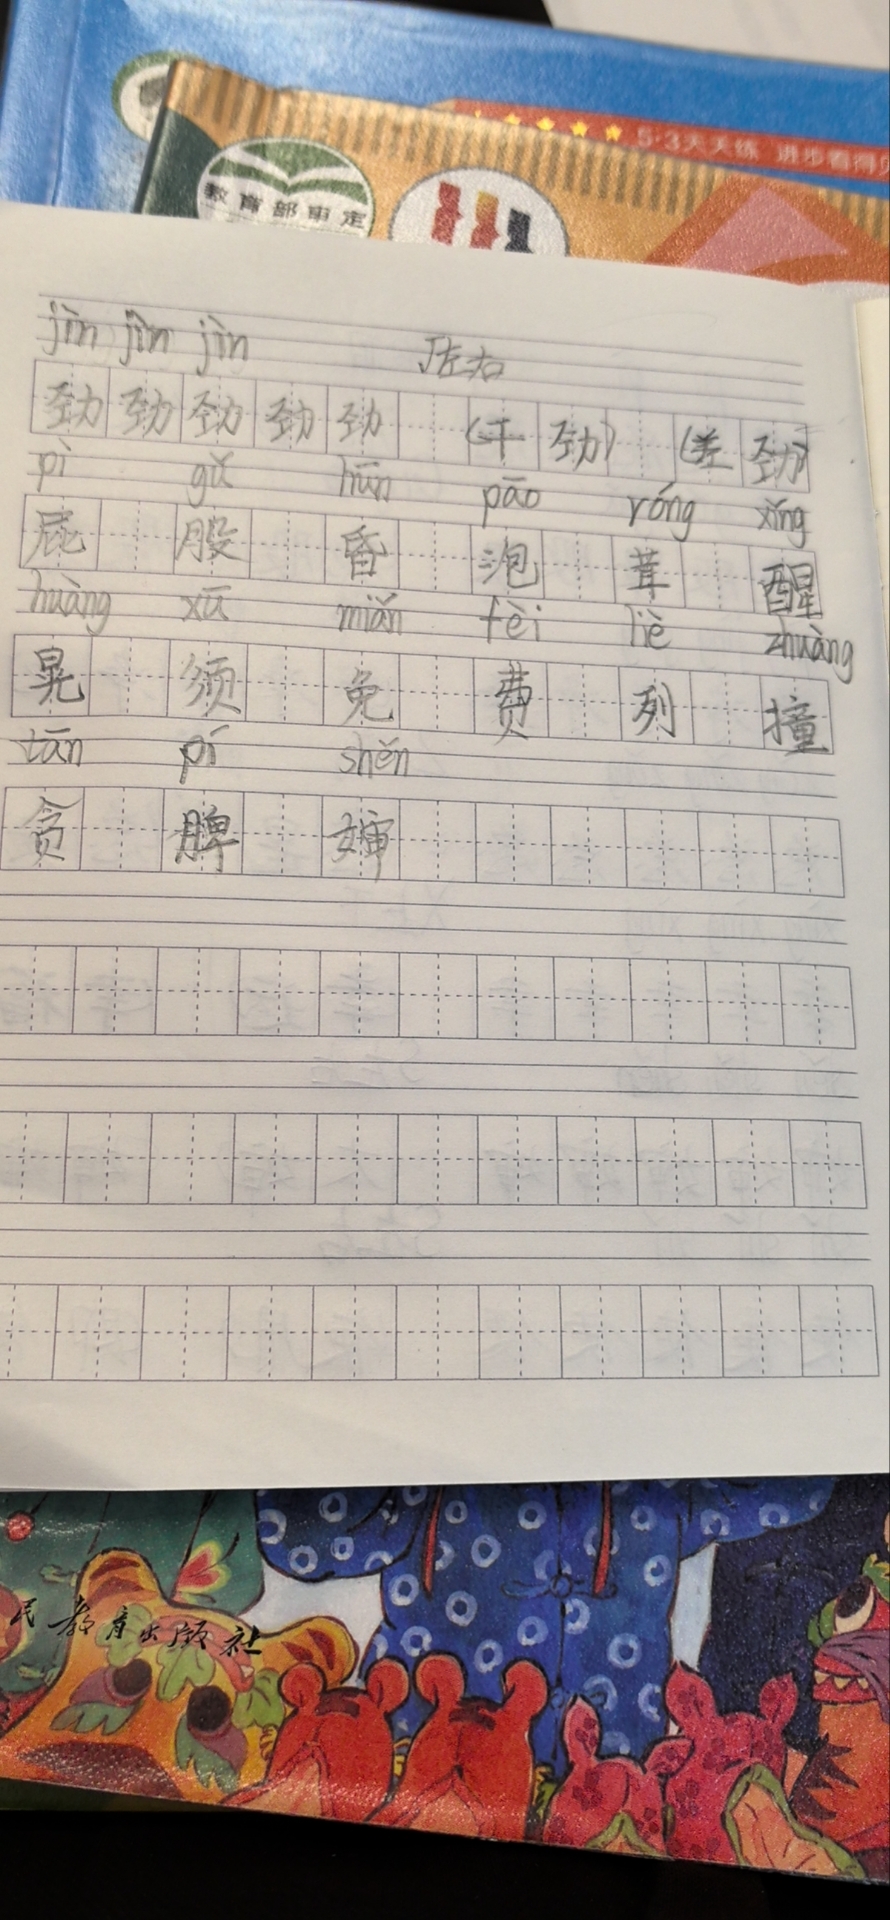 5·3天天练 进步看得见
教育部审定
jìn jìn jìn 左右
劲劲劲劲劲 (干劲) (差劲)
pì gǔ hūn pāo róng xǐng
屁 股 昏 泡 茸 醒
huàng xū miǎn fèi liè zhuàng
晃 须 免 费 列 撞
tān pí shěn
贪 脾 婶
民教育出版社